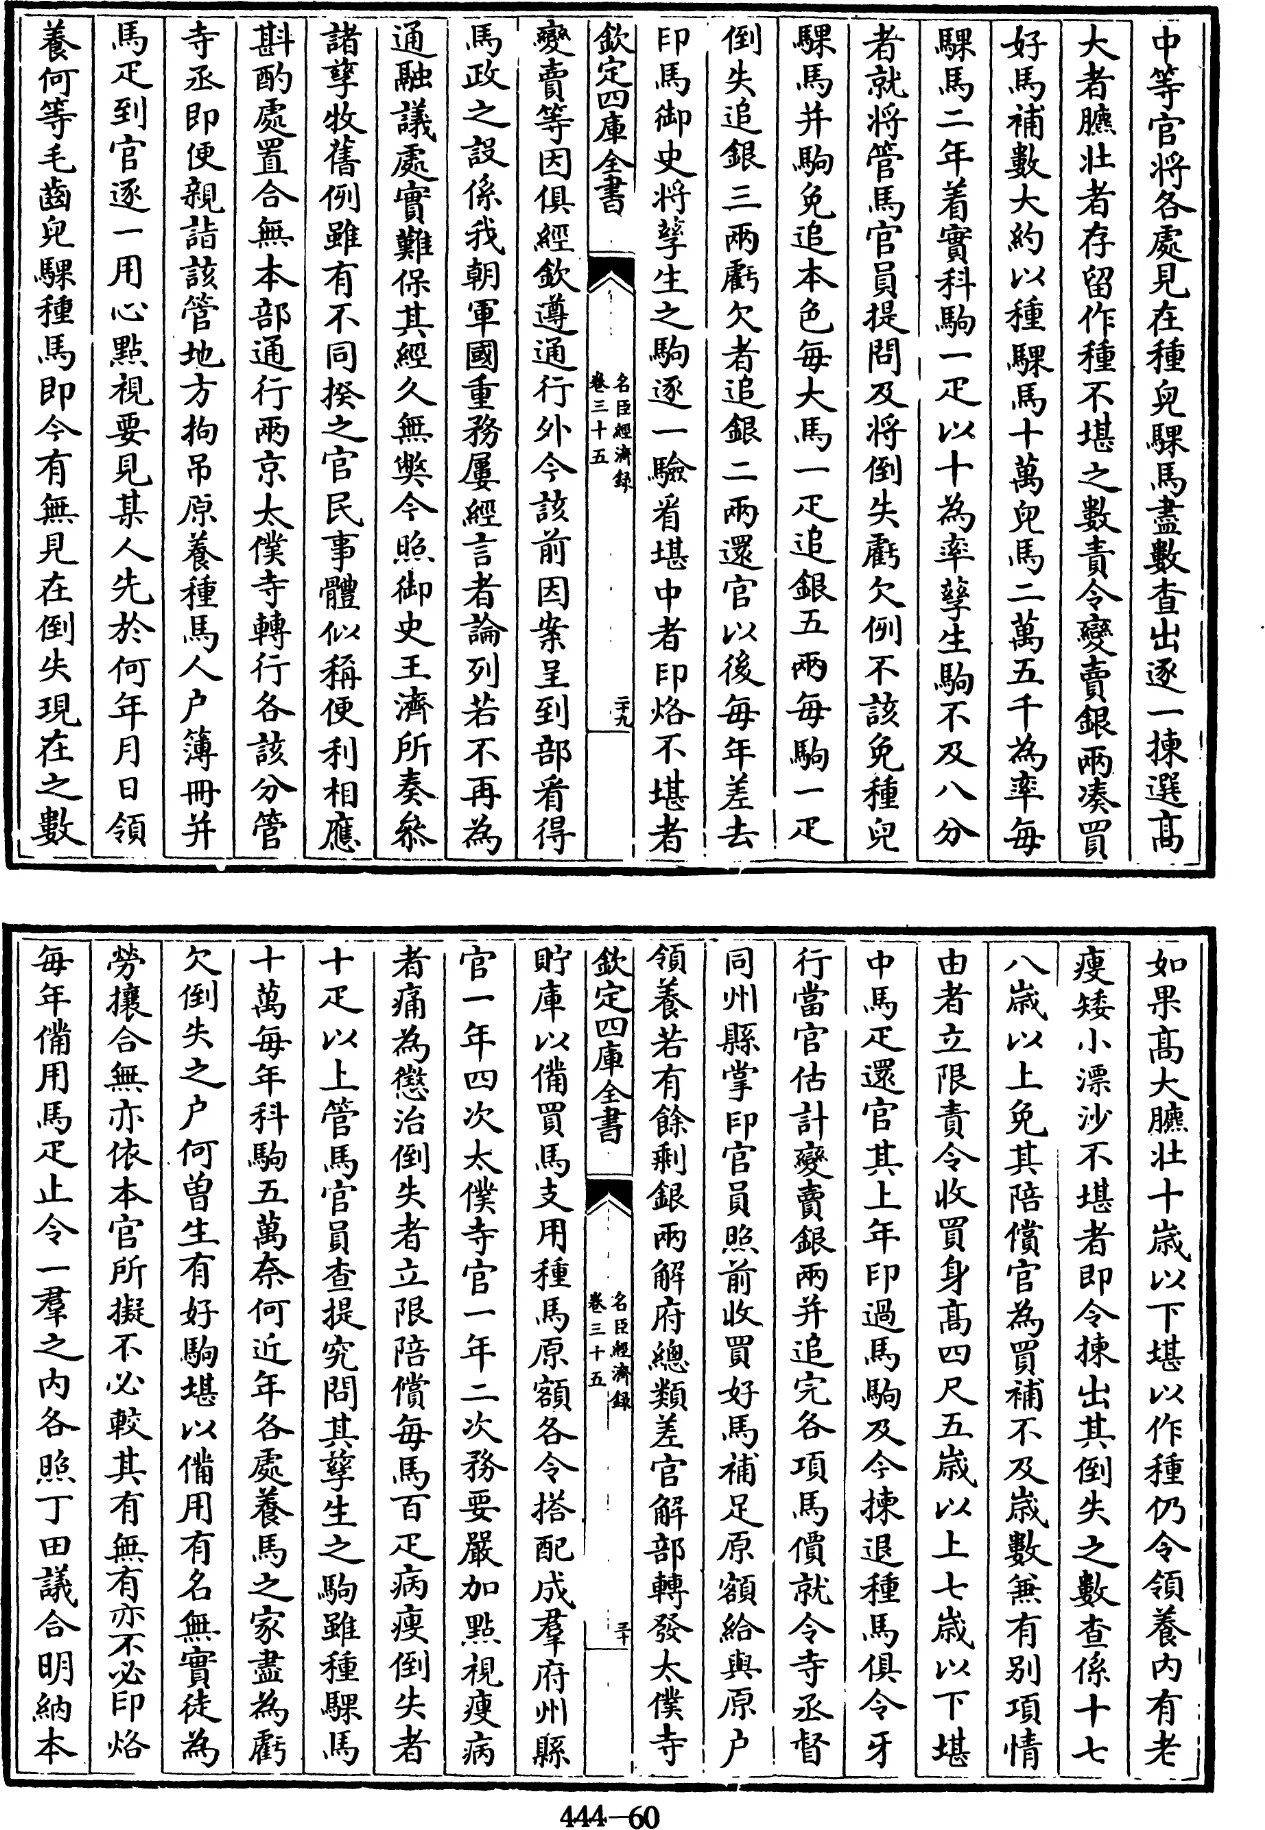 中等官将各處見在種兒騍馬盡數查出逐一揀選髙
大者臕壯者存留作種不堪之數責令變賣銀兩凑買
好馬補數大約以種騍馬十萬兒馬二萬五千為率每
騍馬二年着實科駒一疋以十為率孳生駒不及八分
者就将管馬官員提問及将倒失虧欠例不該免種兒
騍馬并駒免追本色每大馬一疋追銀五兩每駒一疋
倒失追銀三兩虧欠者追銀二兩還官以後每年差去
印馬御史将孳生之駒逐一驗看堪中者印烙不堪者
欽定四庫全書
名臣經濟録
卷三十五
二十九
變賣等因俱經欽遵通行外今該前因案呈到部看得
馬政之設係我朝軍國重務屢經言者論列若不再為
通融議處實難保其經久無獘今照御史王濟所奏叅
諸孳牧舊例雖有不同揆之官民事體似稱便利相應
斟酌處置合無本部通行兩京太僕寺轉行各該分管
寺丞即便親詣該管地方拘吊原養種馬人户簿冊并
馬疋到官逐一用心點視要見某人先於何年月日領
養何等毛齒兒騍種馬即今有無見在倒失現在之數
如果髙大臕壯十歳以下堪以作種仍令領養内有老
瘦矮小漂沙不堪者即令揀出其倒失之數查係十七
八歳以上免其陪償官為買補不及歳數兼有别項情
由者立限責令收買身髙四尺五歳以上七歳以下堪
中馬疋還官其上年印過馬駒及今揀退種馬俱令牙
行當官估計變賣銀兩并追完各項馬價就令寺丞督
同州縣掌印官員照前收買好馬補足原額給與原户
領養若有餘剩銀兩解府總類差官解部轉發太僕寺
欽定四庫全書
名臣經濟録
卷三十五
三十
貯庫以備買馬支用種馬原額各令搭配成羣府州縣
官一年四次太僕寺官一年二次務要嚴加點視瘦病
者痛為懲治倒失者立限陪償每馬百疋病瘦倒失者
十疋以上管馬官員查提究問其孳生之駒雖種騍馬
十萬每年科駒五萬奈何近年各處養馬之家盡為虧
欠倒失之户何曽生有好駒堪以備用有名無實徒為
勞攘合無亦依本官所擬不必較其有無有亦不必印烙
每年備用馬疋止令一羣之内各照丁田議合明納本
444-60